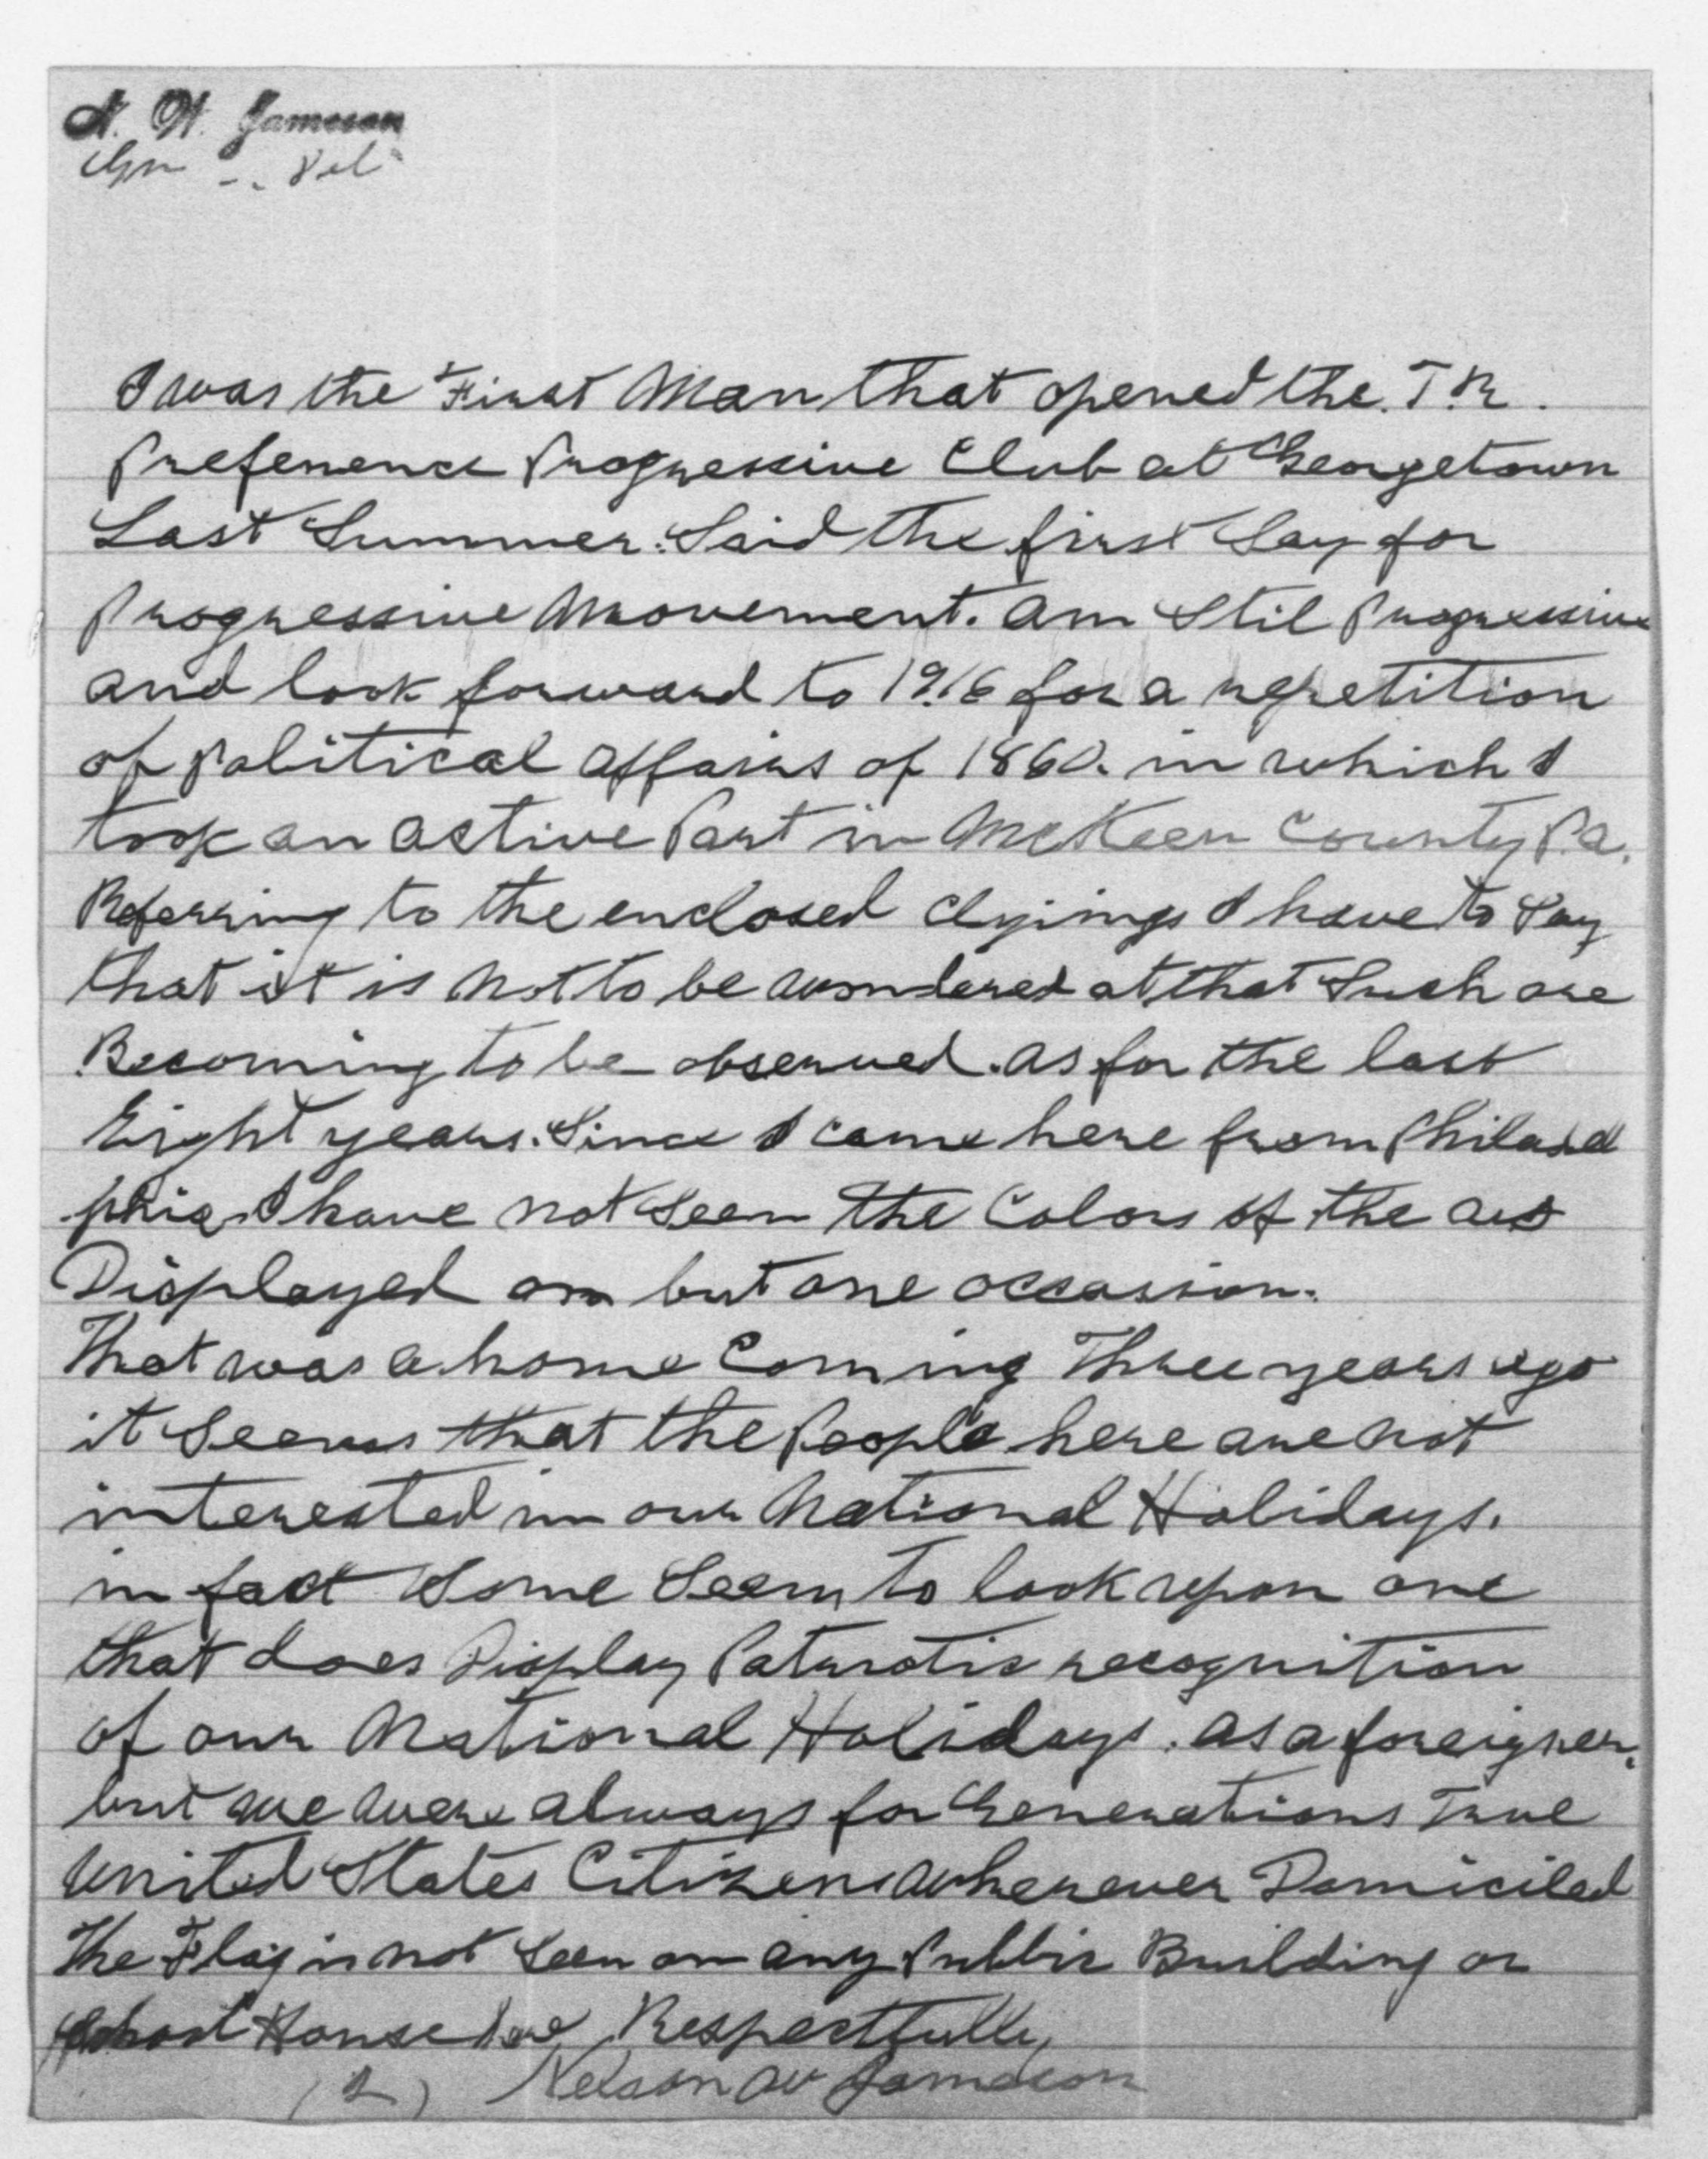 N. W. Jameson
Del
I was the First Man that opened the. T.R.
Preference Progressive Club at Georgetown
Last Summer. Said the first Say for
Progressive Movement. am Stil Progressive
and look forward to 1916 for a repetition
of political affairs of 1860. in which I
took an active Part in McKean County Pa.
Referring to the enclosed I have to Say
that it is not to be wondered at that Such are
Becoming to be observed. as for the last
Eight years. Since I came here from Philadel
phia I have not Seen the Colors of the
Displayed on but one occassion.
That was a home Coming Three years ago
it Seems that the People here are not
interested in our National Holidays.
in fact Some Seem to look upon one
that does Display Paturotic recognition
of our National Holidays. as a foreigner.
but we were always for Generations True
United States Citizens wherever Domiciled
The Flag is not Seen on any Publir Building or
School House here Respectfully
(2) Nelson W Jameson